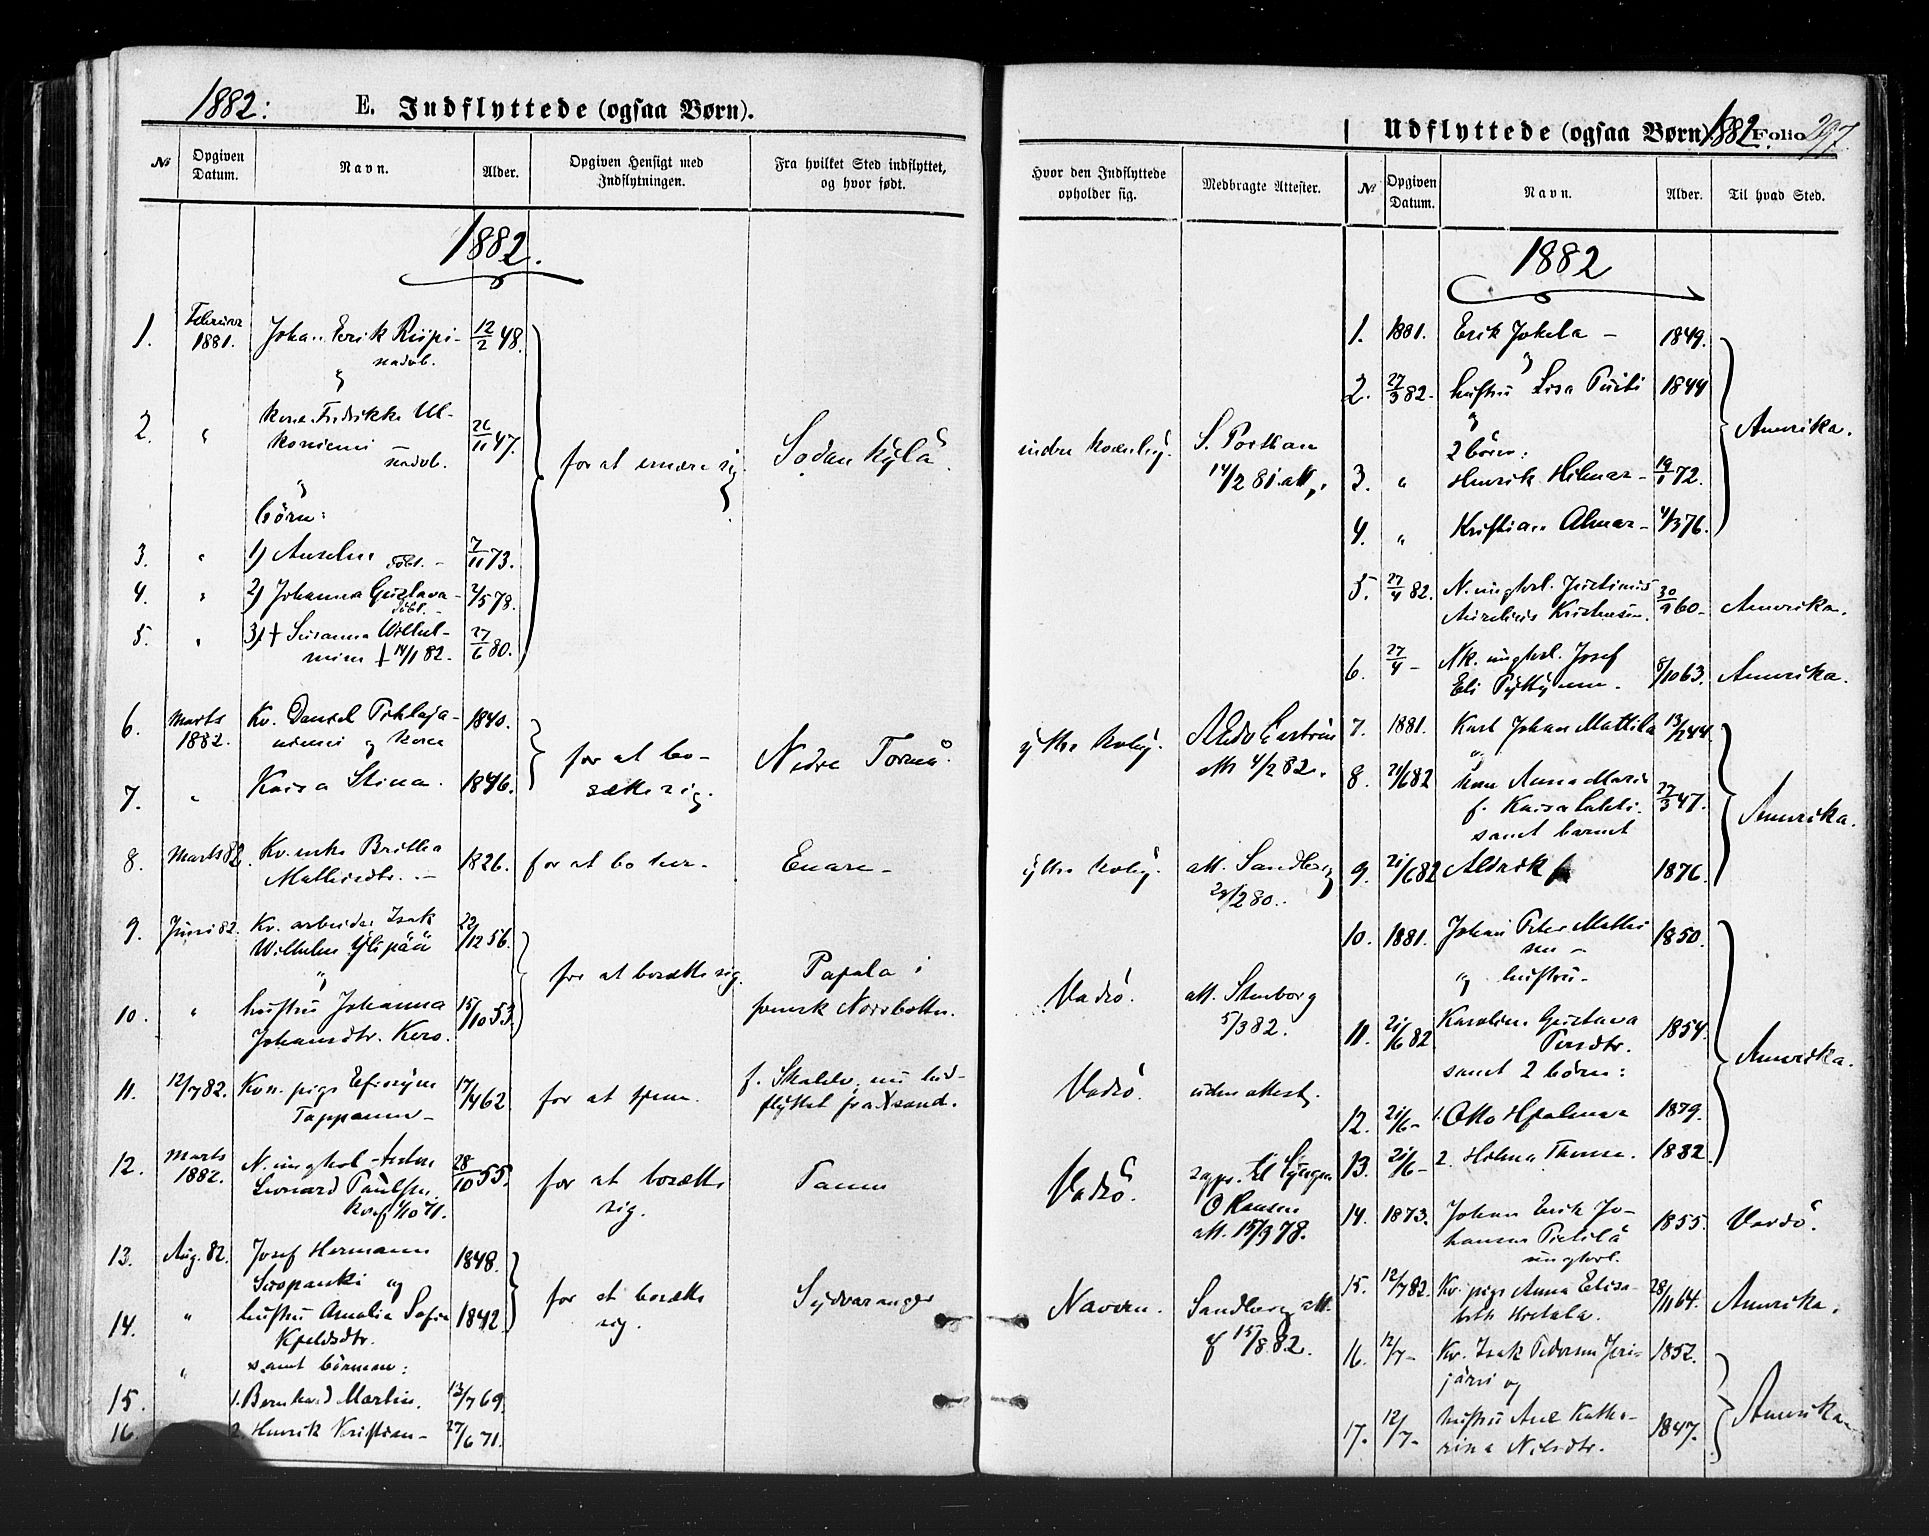 1882. E. Indflyttede (ogsaa Børn).
№ Opgiven Datum. Navn. Alder. Opgiven Hensigt med Indflytningen. Fra hvilket Sted indflyttet, og hvor født.
1882.
1. Februar 1881. Johan Erik Riipi- 12/2 48.
nadvb.
2. " Kone Fredrikke Ul- 26/11 47. for at ernære sig. Sodankylä.
koniemi nadvb.
børn:
3. " 1) Anselm döbt. - 7/11 73.
4. " 2) Johanna Gustava - 2/5 78.
döbt. -
5. " 3) + Susanna Wilhel- 27/6 80.
mine + 14/1 82.
6. Marts 1882. Kv. Daniel Pihlaja- 1840. for at bo- Nedre Torneå.
niemi og kone
7. " Kaisa Stina. 1846. sætte sig.
8. Marts 82. Kv. enke Britha 1826. for at bo her. Enare -
Mathisdtr. -
9. Juni 82. Kv. arbeider Isak 22/12 56.
Wilhelm Ylipää for at bosætte sig. Pajala i
10. " hustru Johanna 15/10 53. svensk Norrbotten.
Johansdtr. Kero.
11. 12/7 82. Kvn. pige Efrosyne 17/4 62. for at tjene. f. Skallelv. nu ind-
Tappanen - flyttet fra Xsand.
12. Marts 1882. N. ungkarl Anton 28/10 55. for at bosætte Tanen
Leonard Paulsen. sig.
Konf. 1/10 71.
13. Aug. 82. Josef Hermann 1848. for at bosætte Sydvaranger
Suopanki og sig.
14. " hustru Amalia Sofia 1842.
Kjeldsdtr.
" samt börnene:
15. 1. Bernhard Martin. 13/7 69.
16. 2. Henrik Kristian - 27/6 71.
Hvor den Indflyttede opholder sig. Medbragte Attester.
indre Kvænby. S. Portkan
14/2 81. att.
ytre Kvby. Aldo Castrén
att. 4/2 82.
ytre Kvby. att. Sandberg
29/2 80.
Vadsö. att. Stenborg
5/3 82.
Vadsö. uden attest.
Vadsö. opgs. til Lyngen
O Hansen
att. 15/9 78.
Navren. Sandberg att.
af 15/8 82.
Udflyttede (ogsaa Børn). 1882. Folio 297.
№ Opgiven Datum. Navn. Alder. Til hvad Sted.
1882
1. 1881. Erik Jokela - 1849.
og
2. 27/3 82. hustru Lisa Puiti 1844
og Amerika.
2 börn:
3. " Henrik Hilmar - 19/1 72.
4. " Kristian Almar - 4/3 76.
5. 27/4 82. N. ungkarl. Justinius 30/9 60. Amerika.
Aurelius Kristensen.
6. 27/4 - Nk. ungkarl. Josef 8/10 63. Amerika.
Eli Pyykönen.
7. 1881. Karl Johan Mattila 13/2 44.
og
8. 21/6 82 kone Anna Maria 27/3 47.
f. Kaisa Lahti. Amerika.
samt barnet
9. 21/6 82 Aldrik 1876.
10. 1881. Johan Peter Mathi- 1850.
sen -
og hustru -
11. 21/6 82 Karolina Gustava 1854.
Persdtr. Amerika.
samt 2 börn:
12. 21/6 - 1. Otto Hjalmar 1879.
13. 21/6 - 2. Helma Therese. 1882.
14. 1873. Johan Erik Jo- 1855. Vardö.
hansen Pietilä
ungkarl.
15. 12/7 82. Kv. pige Anna Elisa- 28/11 64. Amerika.
beth Hietala.
16. 12/7 - Kv. Isak Pedersen Jeri- 1852.
järvi og Amerika.
17. 12/7 - hustru Ane Katha- 1847.
rina Nilsdtr.